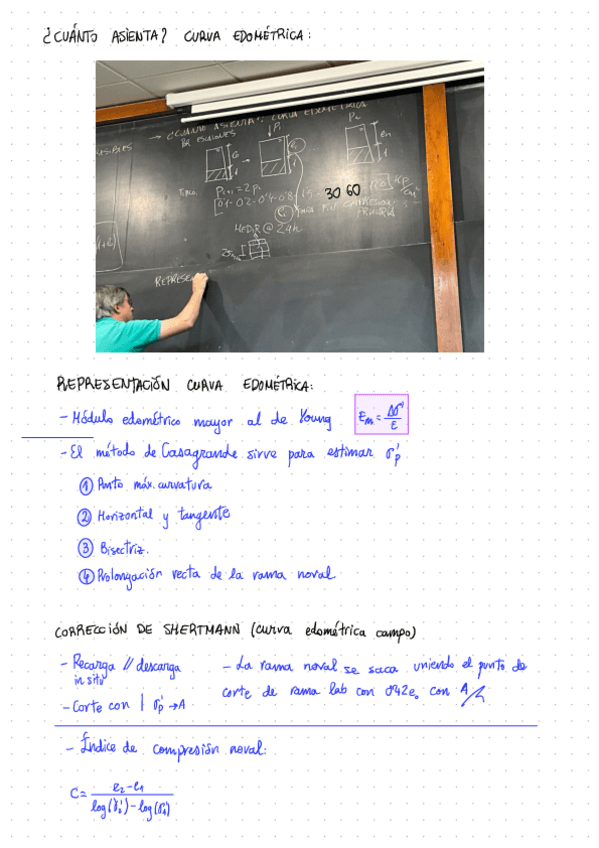 ¿CUÁNTO ASIENTA? CURVA EDOMÉTRICA:
→ ¿CUÁNTO ASIENTA?: CURVA EDOMETRICA
POR ESCALONES
Pi+1 = 2Pi
0'1-0'2-0'4-0'8 1'5 30 60
MEDIR @ 24h
REPRESEN
REPRESENTACIÓN CURVA EDOMÉTRICA:
- Módulo edométrico mayor al de Young Em = Δσ' / ε
- El método de Casagrande sirve para estimar σ'p
① Punto máx. curvatura
② Horizontal y tangente
③ Bisectriz.
④ Prolongación recta de la rama noval.
CORRECCIÓN DE SHERTMANN (curva edométrica campo)
- Recarga // descarga
in situ
- Corte con | σ'p → A
- La rama noval se saca uniendo el punto de
corte de rama lab con 0'42e₀ con A
- Índice de compresión noval:
C = e₂-e₁ / log(σ'₂) - log(σ'₁)